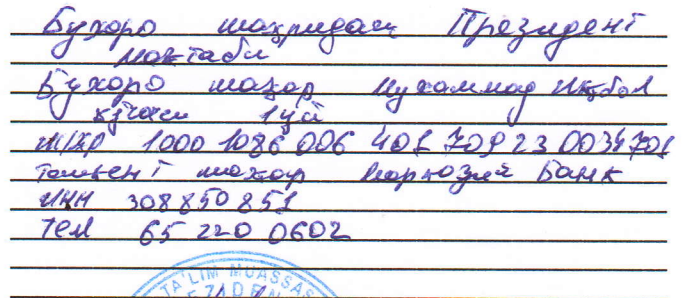 Бухоро шахридаги Президент
мактаби
Бухоро шахар Мухаммад Икбол
кучаси 1 уй
Ш/ХР 1000 1086 006 401 709 23 0034701
Тошкент шахар Марказий Банк
ИНН 308850851
тел 65 220 0602
TA'LIM MUASSAS
EZIDEN